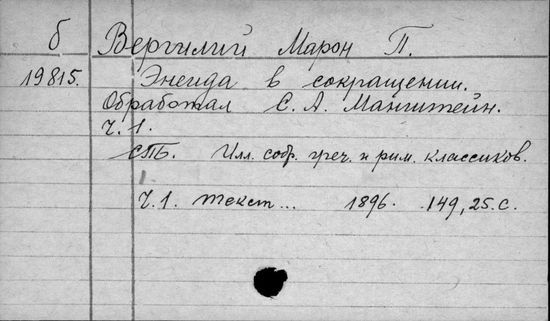 б Вергилий Марон П.
19815. Энеида в сокращении.
Обработал С. А. Манштейн.
Ч. 1.
СПБ. Илл. собр. греч. и рим. классиков.
Ч. 1. Текст... 1896. 149, 25. с.